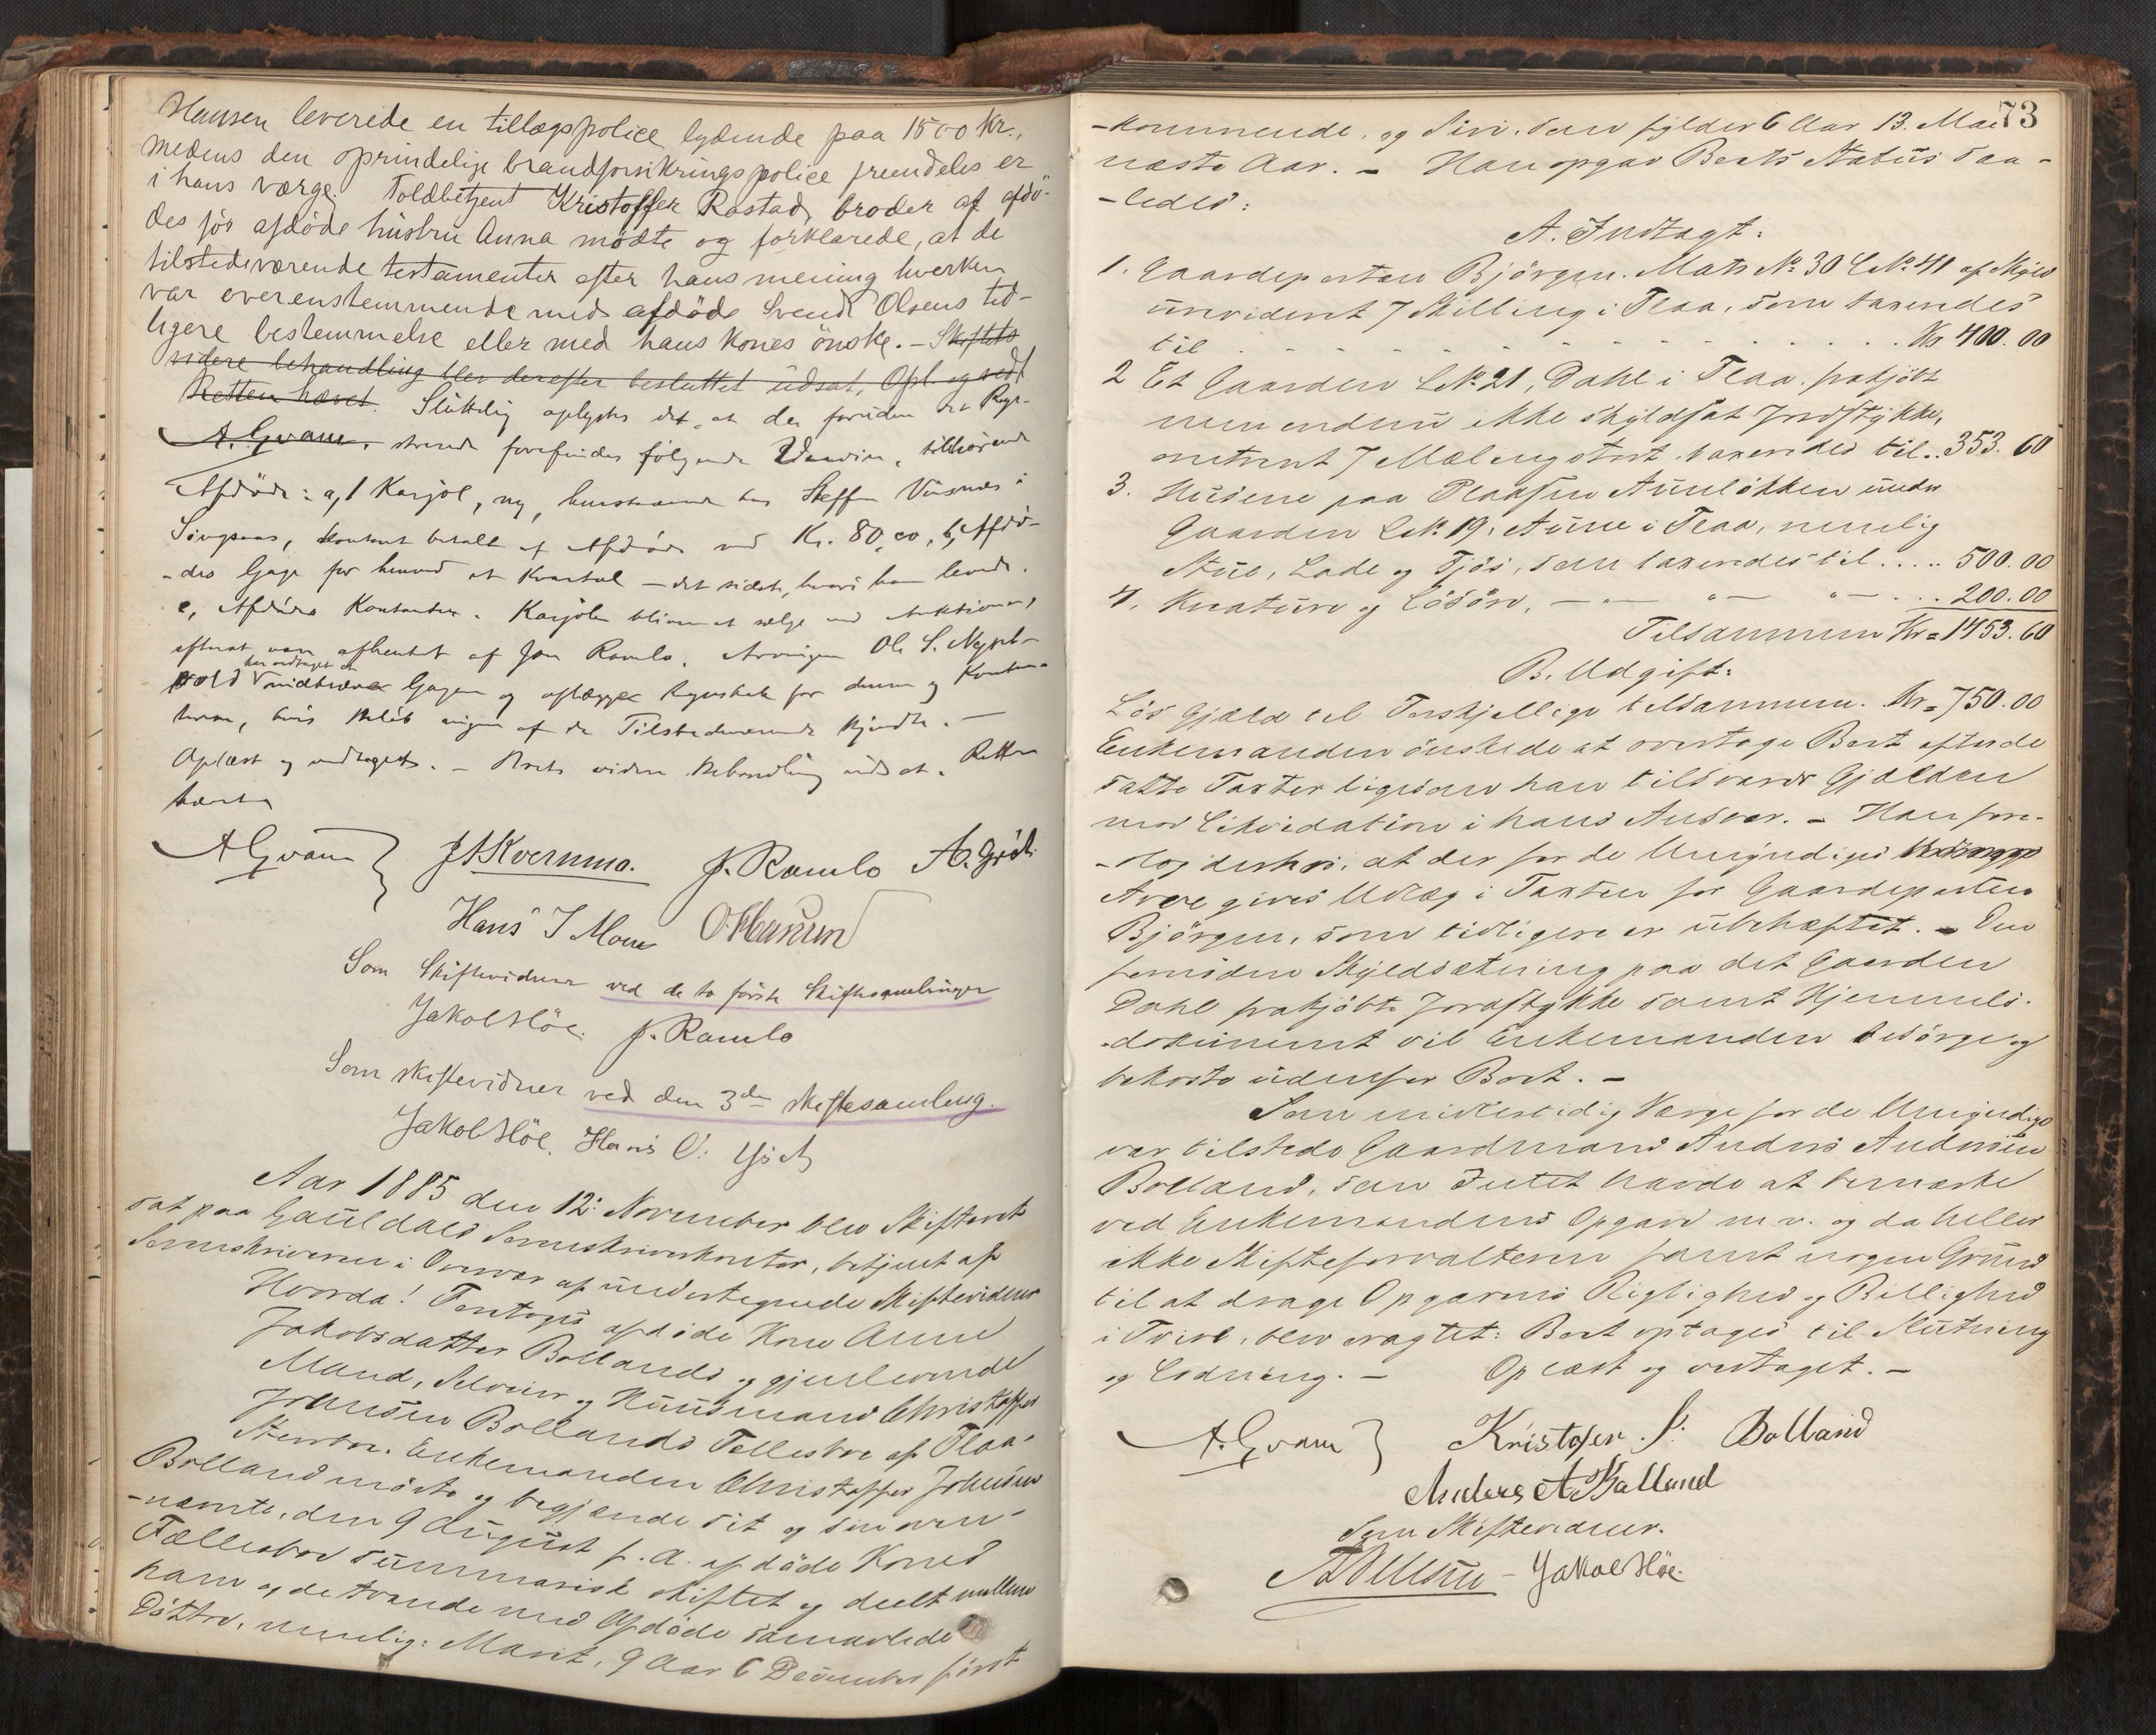 Hansen leverede en tillægspolice lydende paa 1500 Kr.,
medens den oprindelige brandforsikringspolice fremdeles er
i hans værge. Toldbetjent Kristoffer Rostad, broder af afdö-
des för afdöde hustru Anna mödte og forklarede, at de
tilstedeværende testamenter efter hans mening hverken
var overenstemmende med afdöde Svend Olsens tid-
ligere bestemmelse eller med hans kones önske. - Skiftets
videre behandling blev derefter besluttet udsat, Opl. og vedt
Retten hævet. Sluttelig oplystes det, at der foruden det Regi-
A. Qvam. strerede forefindes følgende Værdier, tilhörende
Afdöde: a, 1 Karjol, ny, henstaaende hos Steffen Viisnes i
Singsaas, kontant betalt af Afdöde med Kr. 80,00, b, Afdö-
-des Gage for et Kvartal - det sidste, hvori han levede.
c, Afdödes Kontanter. Karjolen bliver at sælge ved Auktionen,
efterat være afhentet af Jon Ramlo. Arvingen Ole S.
har vedtaget at
Gagen og aflægge Regnskab for denne og Kontan-
terne, hvis Beløb ingen af de Tilstedeværende kjendte. -
Oplæst og vedtaget. - Boets videre Behandling udsat. Retten
hævet
A Qvam } J A Kvernmo. J. Ramlo A. Gisk
Hans J Moum O. Hansen
Som Skiftevidner ved de to første Skiftesamlinger
Jakob Höe. J. Ramlo
Som skiftevidner ved den 3die skiftesamling.
Jakob Höe. Hans O.
Aar 1885 den 12te November blev Skifteret
sat paa Gauldals Sorenskriverkontor, betjent af
Sorenskriveren i Overvær af undertegnede Skiftevidner
Hvorda! Foretoges afdöde Kone Anne
Jakobsdatter Bollands og gjenlevende
Mand, Selveier og Huusmand Christoffer
Johnsen Bollands Fellesboe af Flaa.
Stervbo. Enkemanden Christoffer Johnsen
Bolland mödte og begjærede sit og sin oven-
-nævnte, den 9 August f. A. afdöde Kones
Fællesboe summarisk skiftet og deelt mellem
ham og de tvende med Afdöde samavlede
Döttre, nemlig: Marit, 9 Aar 6 December först
73
-kommende, og Siri, som fylder 6 Aar 13. Mai
næste Aar. - Han opgav Boets Status saa-
-ledes:
A. Indtægt:
1. Gaardeparten Björgen. Matr No 30 L No 41 af Skyld
urevideret 7 Skilling i Flaa, som taxeredes
til . . . . . . . . . . Kr 400.00
2 Et Gaarden L No 21, Dahl i Flaa, frakjöbt
men endnu ikke skyldsat Jordstykke,
omtrent 7 Mæling stort taxeredes til .. 353.60
3. Husene paa Pladsen Auneløkken under
Gaarden L No 19, Aune i Flaa, nemlig
Stue, Lade og Fjös, som taxeredes til ..... 500.00
4. Kreature og Lösöre, - " - " - " - ... 200.00
Tilsammen Kr = 1453.60
B. Udgift:
Lös Gjæld til Forskjellige tilsammen. Kr = 750.00
Enkemanden önskede at overtage Boet efter de
satte Taxter ligesom han tilsvarer Gjælden
mod Likvidation i hans Ansvar. - Han fore-
-slog derhos, at der for de Umyndiges
Arve gives Udlæg i Taxten for Gaardeparten
Björgen, som tidligere er ubeheftet. - Den
fornödne Skyldsætning paa det Gaarden
Dahl frakjöbte Jordstykke samt Hjemmels-
-dokument vil Enkemanden besörge og
bekoste udenfor Boet. -
Som midlertidig Værge for de Umyndige
var tilstede Gaardmand Anders Andersen
Bolland, som Intet havde at bemærke
ved Enkemandens Opgave m. v. og da heller
ikke Skifteforvalteren fandt nogen Grund
til at drage Opgavens Rigtighed og Billighed
i Tvivl, blev eragtet: Boet optages til Slutning
og Lodning. - Oplæst og vedtaget. -
A. Qvam } Kristofer J: Bolland
Anders A Balland
Som Skiftevidner.
- Jakob Höe.